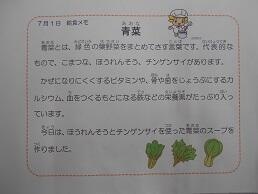 7月1日 給食メモ
あおな
青菜
青菜とは、緑色の葉野菜をまとめてさす言葉です。代表的な
もので、こまつな、ほうれんそう、チンゲンサイがあります。
かぜになりにくくするビタミンや、骨や歯をじょうぶにするカ
ルシウム、血をつくるもとになる鉄などの栄養素がたっぷり入っ
ています。
今日は、ほうれんそうとチンゲンサイを使った青菜のスープを
作りました。